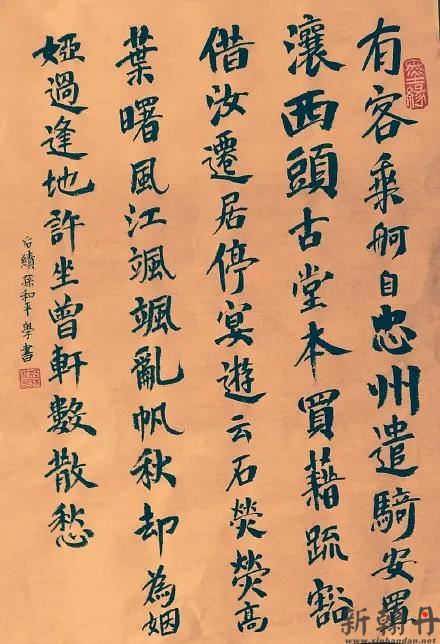 有客乘舸自忠州遣騎安置
瀼西頭古堂本買藉疏豁
借汝遷居停宴遊云石熒熒高
葉曙風江颯颯亂帆秋却為姻
婭過逢地許坐曾軒數散愁
績孫和平學書
新翰丹
www.xinhandan.net